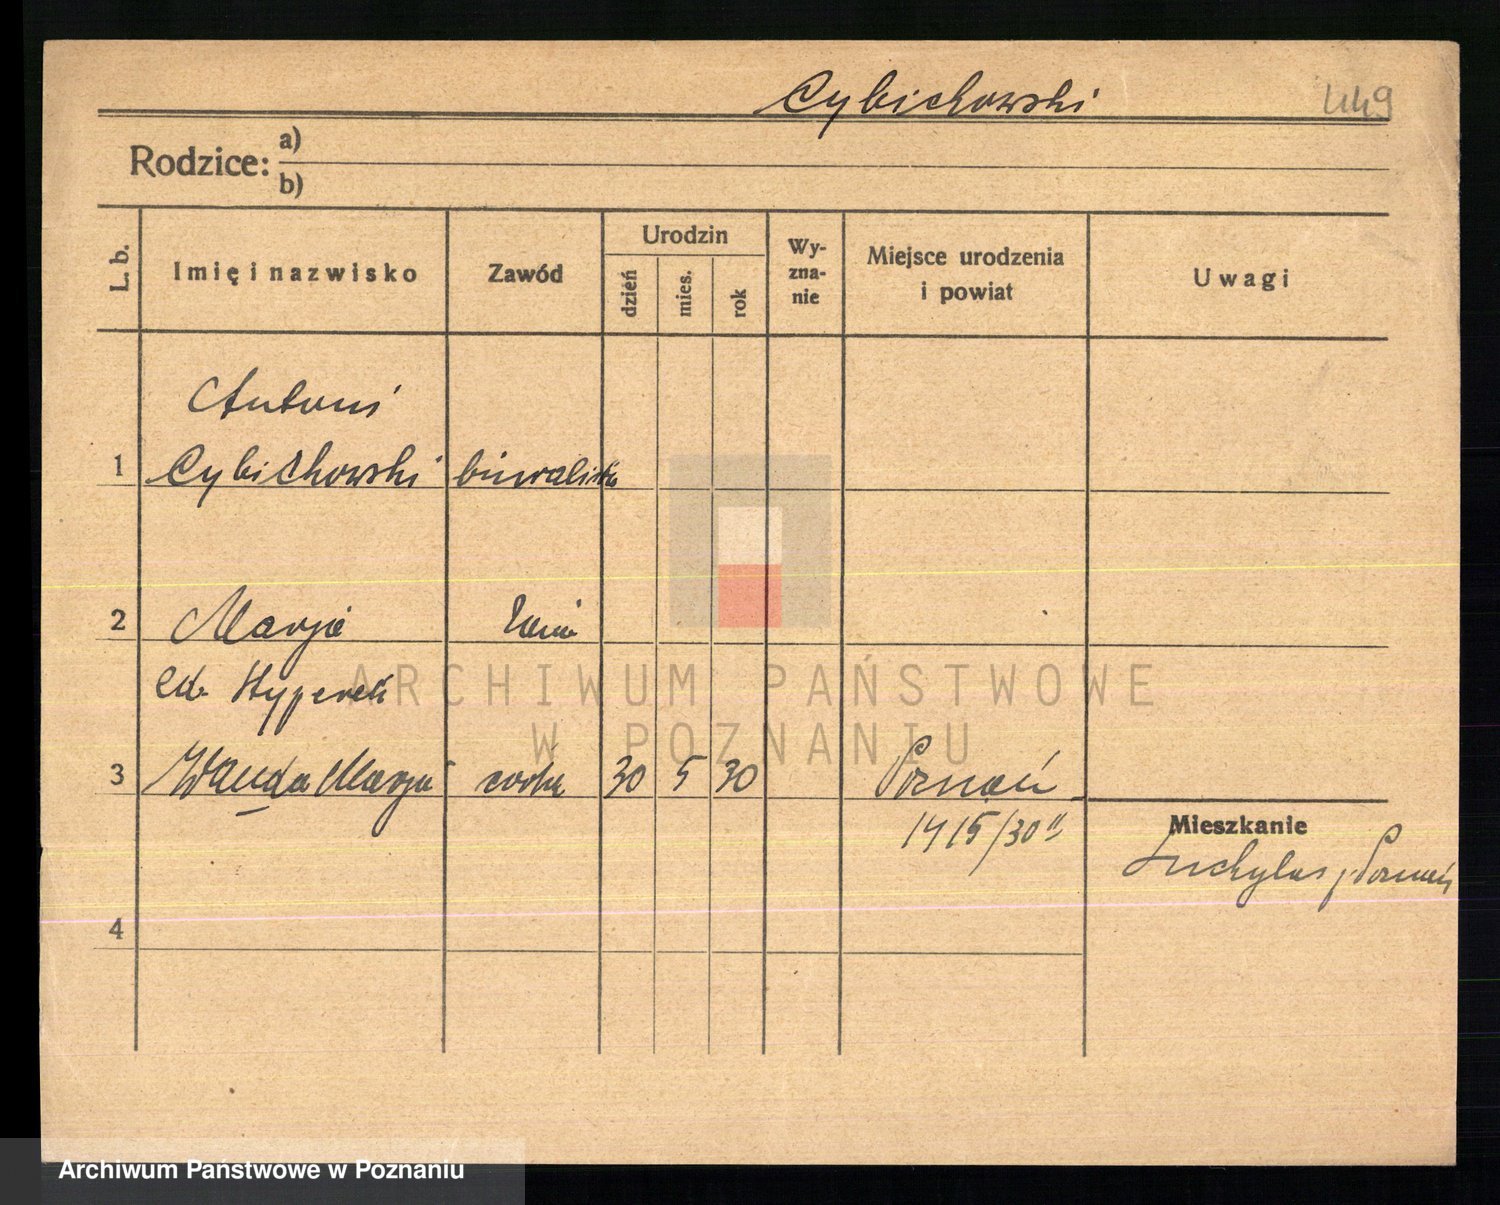 Cybichowski 449
Rodzice: a)
b)
L. b. Imię i nazwisko Zawód Urodzin dzień mies. rok Wy-zna-nie Miejsce urodzenia i powiat Uwagi
Antoni
1 Cybichowski biuralista
2 Marja żona
cd.
3 Wanda Marja córka 30 5 30 Poznań
1415/30"
Mieszkanie
Suchylas p. Poznań
4
ARCHIWUM PAŃSTWOWE
W POZNANIU
Archiwum Państwowe w Poznaniu